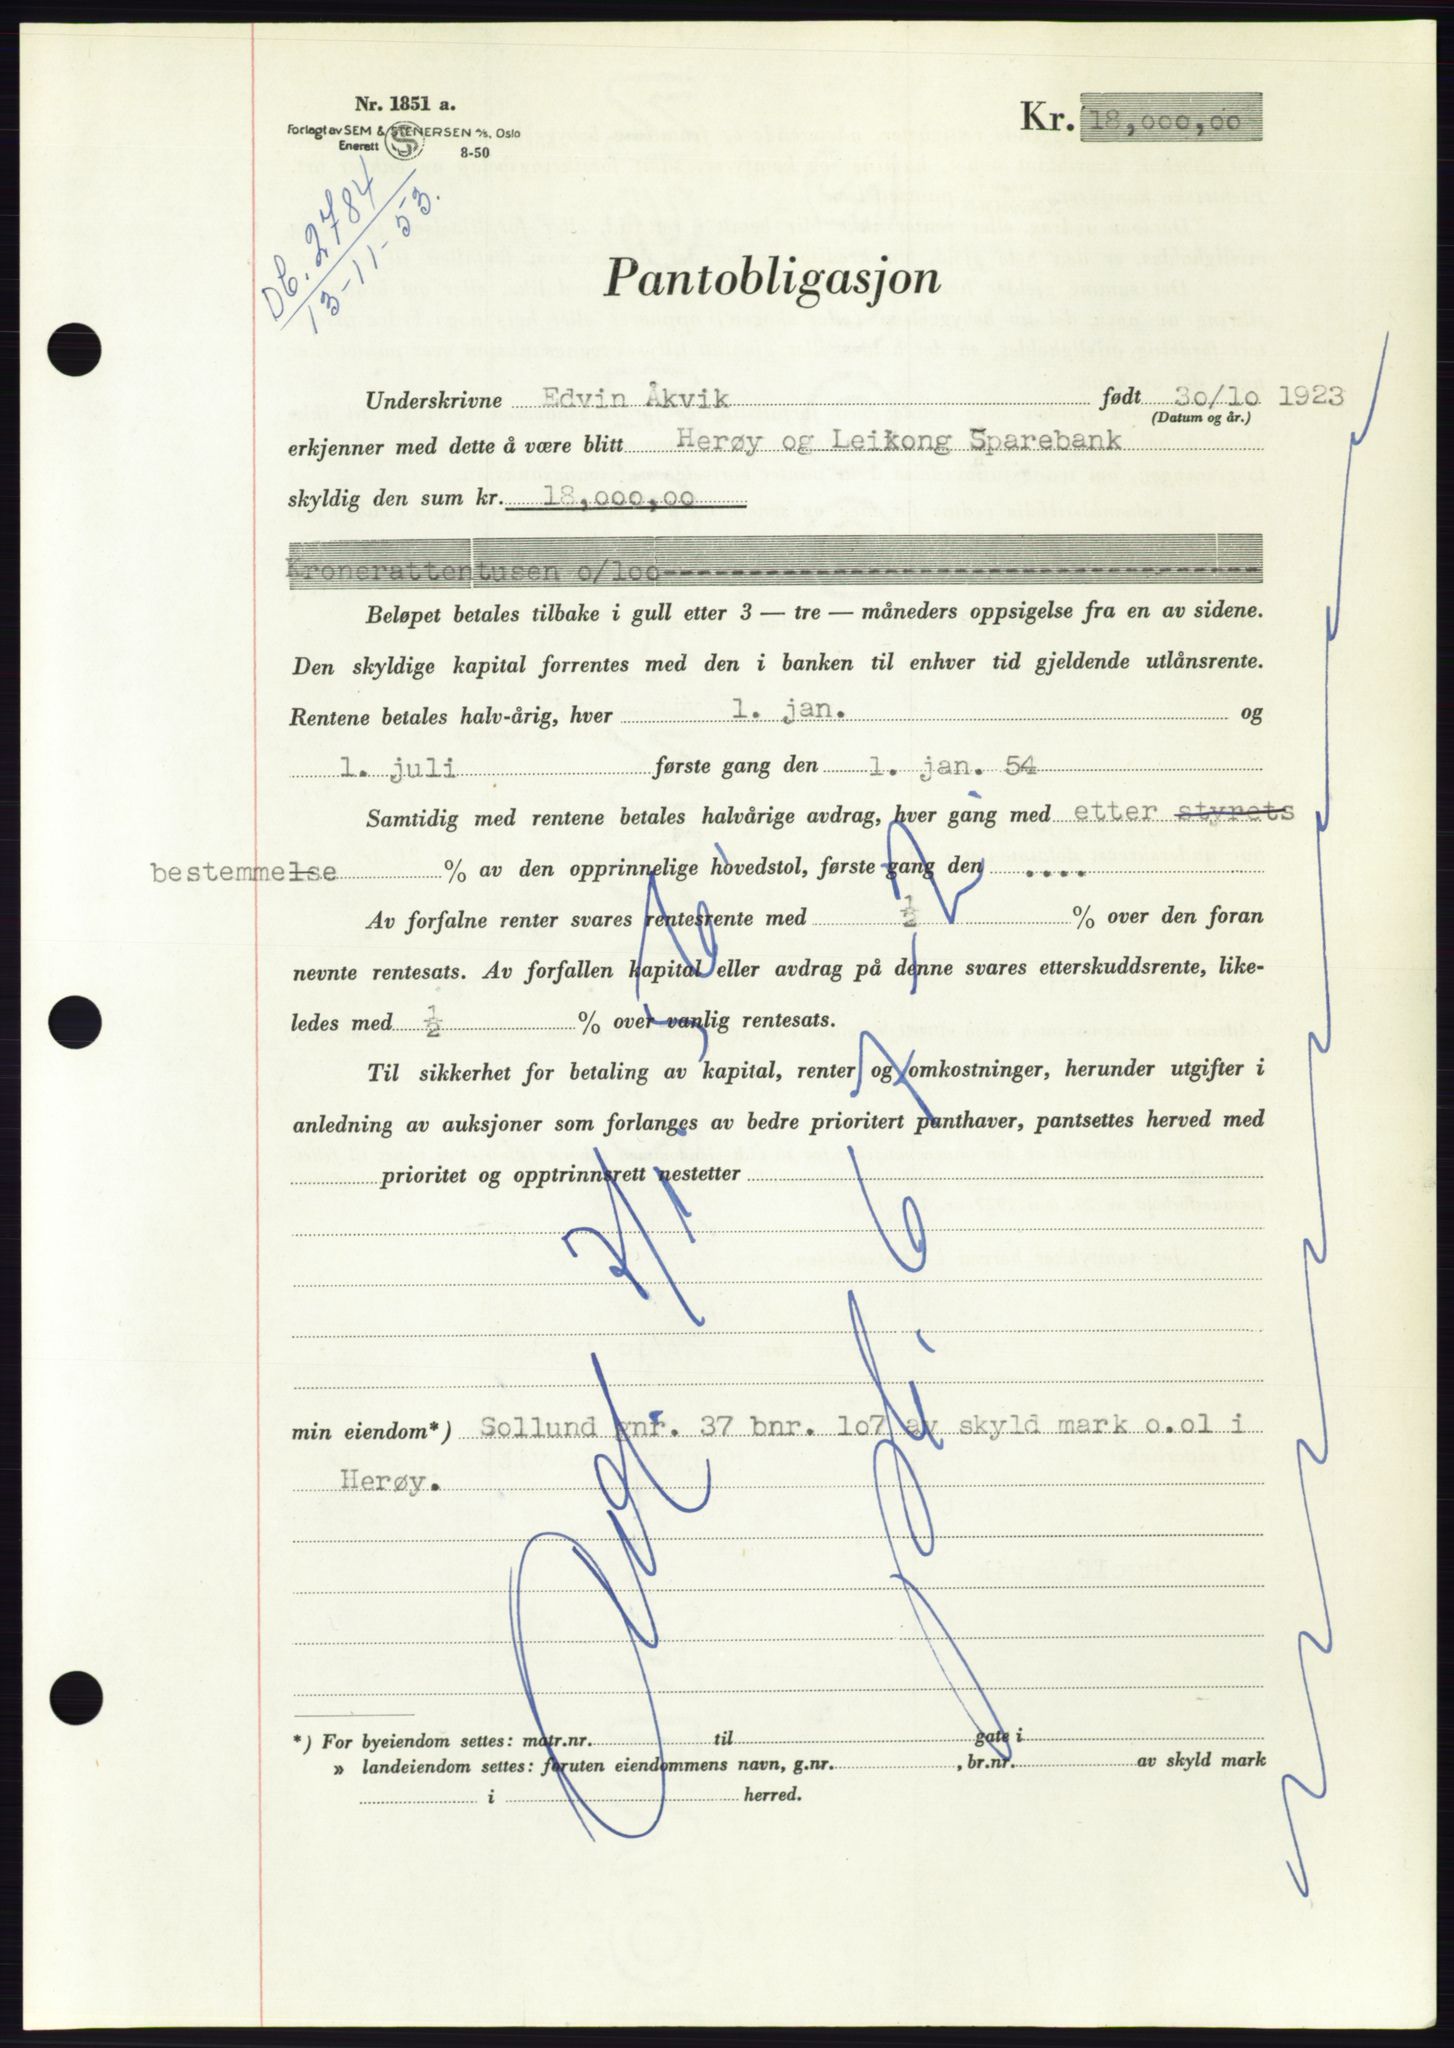 Nr. 1851 a.
Forlagt av SEM & STENERSEN A/S, Oslo
Enerett
8-50
Kr. 18,000,00
Db. 2784
13-11-53.
Pantobligasjon
Underskrivne Edvin Åkvik født 30/10 1923
(Datum og år.)
erkjenner med dette å være blitt Herøy og Leikong Sparebank
skyldig den sum kr. 18,000,00
Kronerattentusen 0/100----------------------------------------
Beløpet betales tilbake i gull etter 3 — tre — måneders oppsigelse fra en av sidene.
Den skyldige kapital forrentes med den i banken til enhver tid gjeldende utlånsrente.
Rentene betales halv-årig, hver 1. jan. og
1. juli første gang den 1. jan. 54
Samtidig med rentene betales halvårige avdrag, hver gang med etter styrets
bestemmelse % av den opprinnelige hovedstol, første gang den ....
Av forfalne renter svares rentesrente med ½ % over den foran
nevnte rentesats. Av forfallen kapital eller avdrag på denne svares etterskuddsrente, like-
ledes med ½ % over vanlig rentesats.
Til sikkerhet for betaling av kapital, renter og omkostninger, herunder utgifter i
anledning av auksjoner som forlanges av bedre prioritert panthaver, pantsettes herved med
prioritet og opptrinnsrett nestetter
min eiendom*) Sollund gnr. 37 bnr. 107 av skyld mark 0.01 i
Herøy.
*) For byeiendom settes: matr.nr. til gate i
» landeiendom settes: foruten eiendommens navn, g.nr. , br.nr. av skyld mark
i herred.